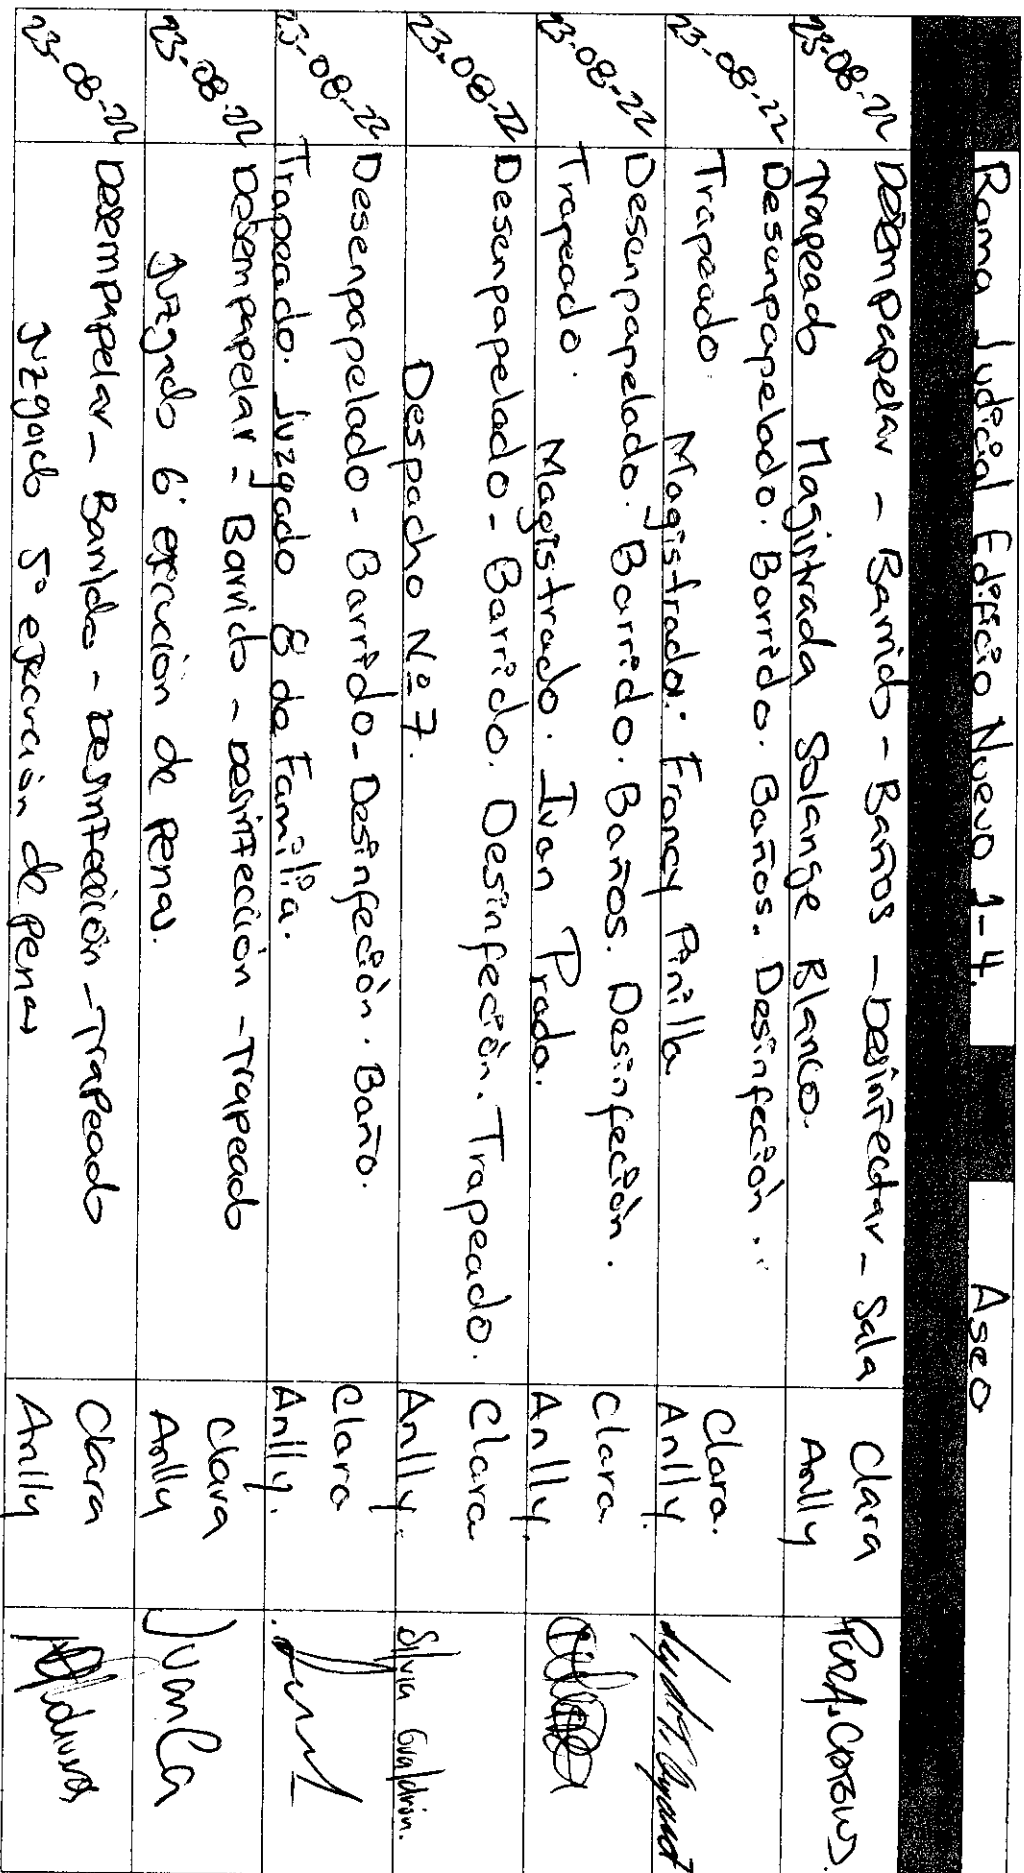 Rama Judicial Edificio Nuevo 1-4. Aseo
23-08-22 Desempapelar - Barrido - Baños - Desinfectar - Sala Clara
Trapeado Magistrada Solange Blanco. Anlly
23-08-22 Desenpapelado. Barrido. Baños. Desinfeción. Clara.
Trapeado. Magistrada: Francy Pinilla Anlly.
23-08-22 Desenpapelado. Barrido. Baños. Desinfeción. Clara
Trapeado. Magistrado. Ivan Prada. Anlly.
23-08-22 Desenpapelado - Barrido. Desinfeción. Trapeado. Clara Silvia Gualdrón.
Despacho Nº 7. Anlly.
23-08-22 Desenpapelado - Barrido - Desinfeción. Baño. Clara
Trapeado. juzgado 8 de Familia. Anlly.
23-08-22 Desempapelar - Barrido - Desinfección - Trapeado Clara Juan Ca
Juzgado 6º ejecución de penas. Anlly
23-08-22 Desempapelar - Barrido - Desinfección - Trapeado Clara
Juzgado 5º ejecución de penas Anlly